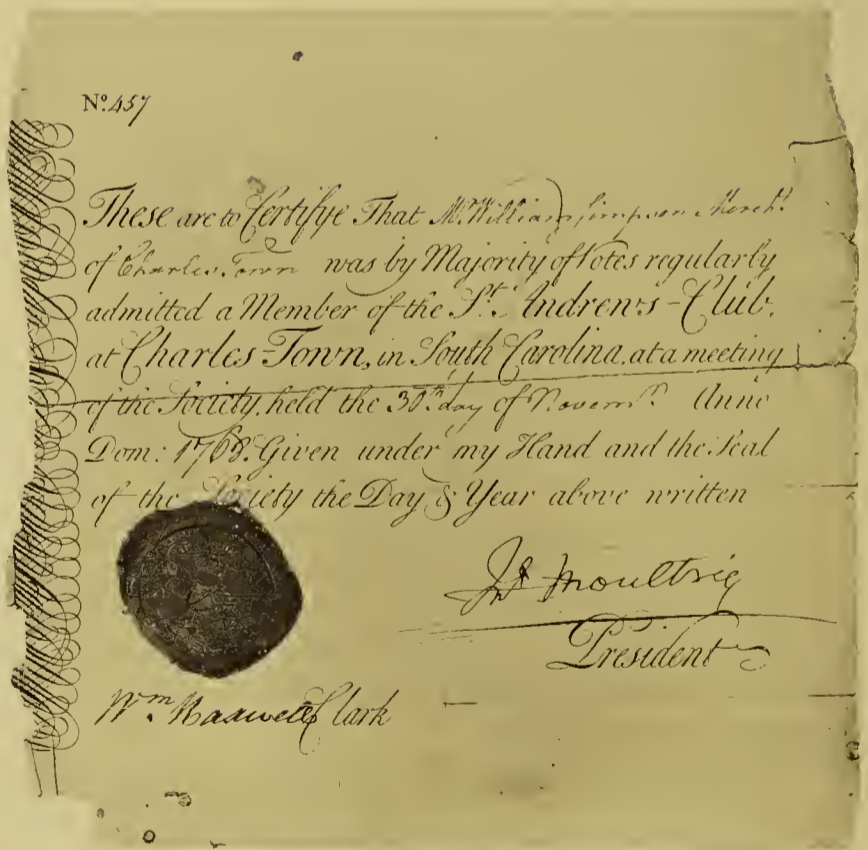 No. 457
These are to Certifye That Mr. William Simpson Mercht.
of Charles Town was by Majority of Votes regularly
admitted a Member of the St. Andrew's-Club,
at Charles-Town, in South Carolina, at a meeting
of the Society, held the 30th day of Novemr. Anno
Dom: 1768. Given under my Hand and the Seal
of the Society the Day & Year above written
Jn Moultrie
President
Wm. Maxwell Clark